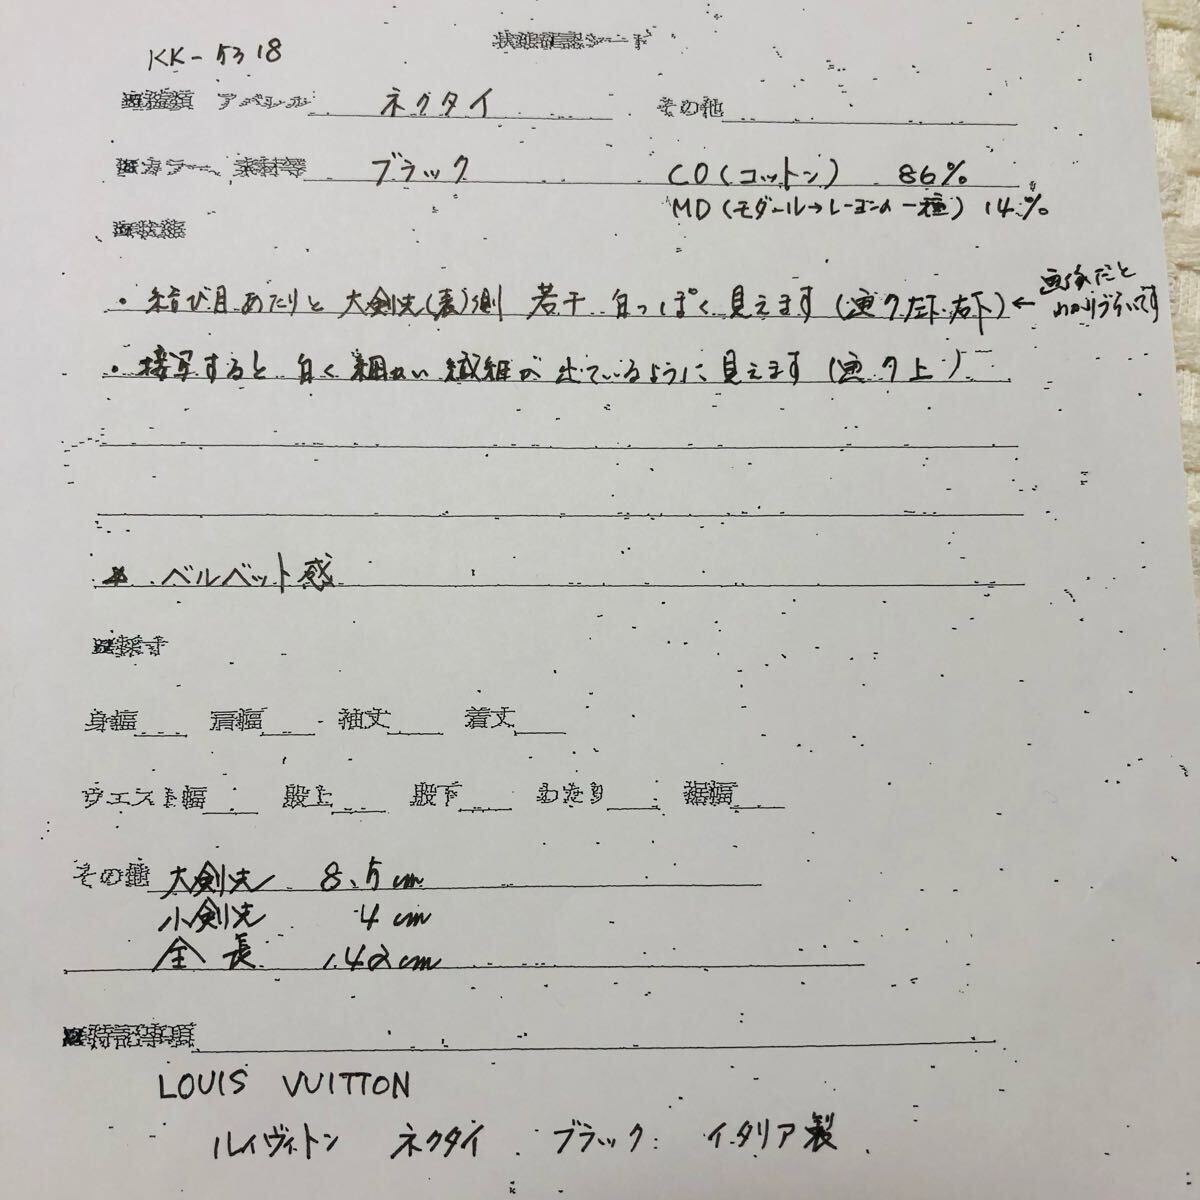 KK-5318
状態確認シート
■種類 アパレル ネクタイ その他
■カラー、素材等 ブラック CO(コットン) 86%
MD(モダール→レーヨンの一種) 14%
■状態
・結び目あたりと大剣先(表)側 若干 白っぽく見えます(画ク左下・右下)← 画像だと
わかりづらいです
・接写すると白く細かい繊維が出ているように見えます(画ク上)
* ベルベット感
■採寸
身幅 肩幅 袖丈 着丈
ウエスト幅 股上 股下 わたり 裾幅
その他 大剣先 8.5cm
小剣先 4cm
全長 142cm
■特記事項
LOUIS VUITTON
ルイヴィトン ネクタイ ブラック イタリア製